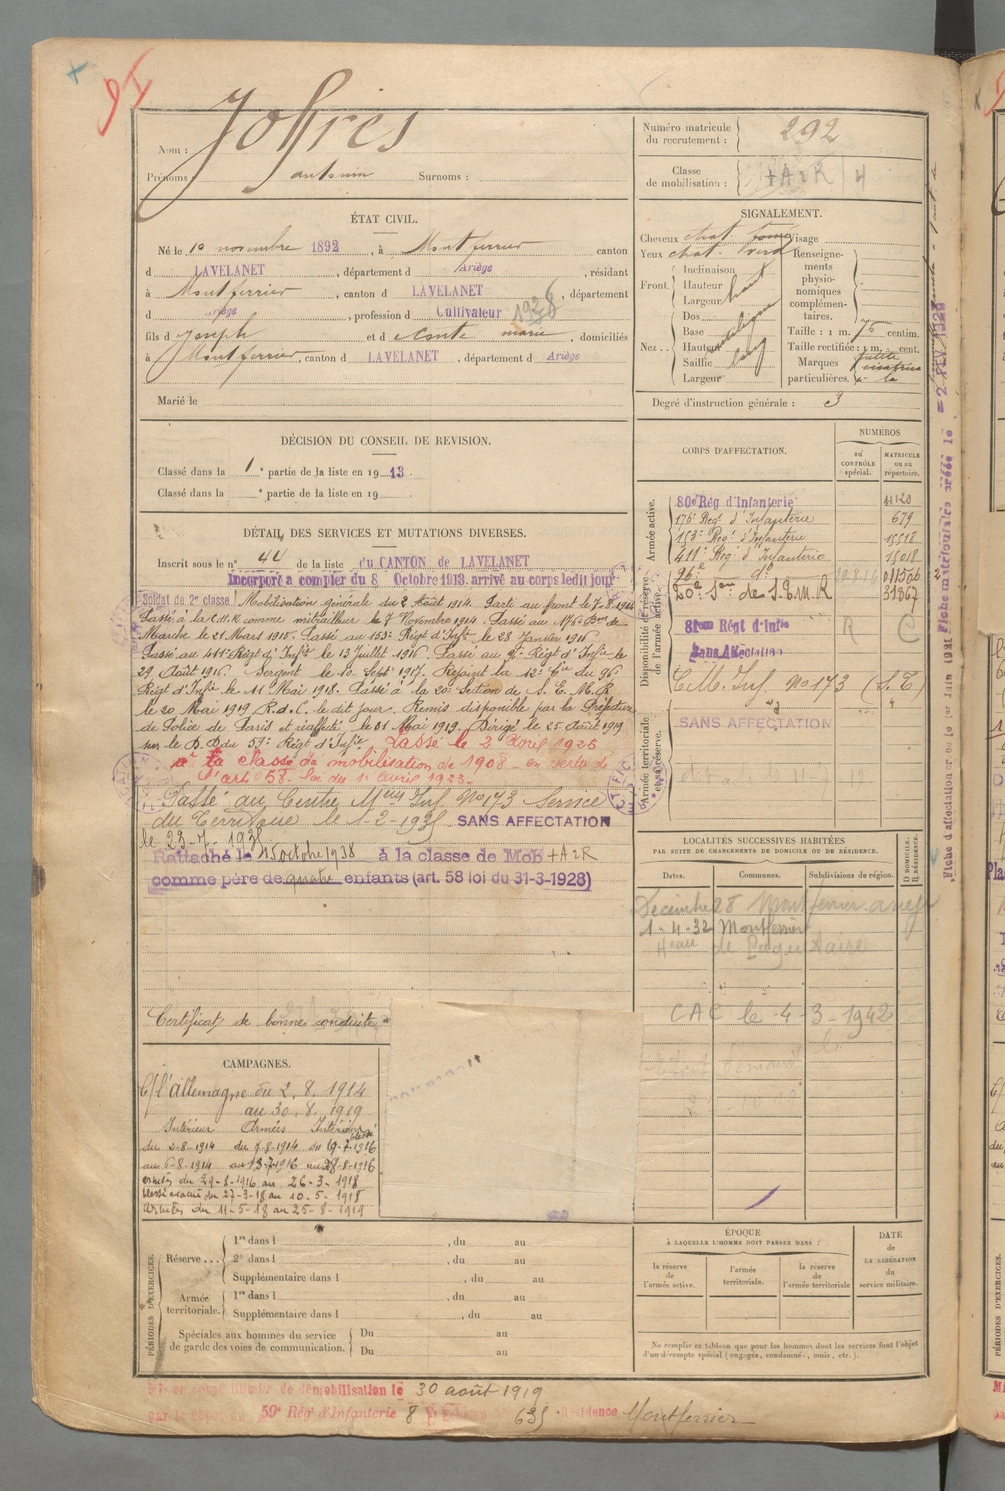 91
Nom : Joffres
Prénoms : antonin Surnoms :
Numéro matricule du recrutement : 292
Classe de mobilisation : + A 2 R 4
ÉTAT CIVIL.
Né le 10 novembre 1892, à Montferrier canton
d LAVELANET, département d Ariège, résidant
à Montferrier, canton d LAVELANET, département
d Ariège, profession d Cultivateur
fils d Joseph et d marie, domiciliés
à Montferrier, canton d LAVELANET, département d Ariège
Marié le
SIGNALEMENT.
Cheveux chat. Visage
Yeux chat.
Front. Inclinaison
Hauteur haut
Largeur
Nez.. Dos
Base
Hauteur
Saillie
Largeur
Renseignements physionomiques complémentaires.
Taille : 1 m. 75 centim.
Taille rectifiée : 1 m. cent.
Marques particulières. petite cicatrice à la
Degré d'instruction générale : 3
DÉCISION DU CONSEIL DE REVISION.
Classé dans la 1e partie de la liste en 1913
Classé dans la e partie de la liste en 19
DÉTAIL DES SERVICES ET MUTATIONS DIVERSES.
Inscrit sous le n° 44 de la liste du CANTON de LAVELANET
Incorporé a compter du 8 Octobre 1913. arrivé au corps ledit jour
Soldat de 2e classe Mobilisation générale du 2 Août 1914. Parti au front le 7-8-1914
Passé à la C.H.R comme mitrailleur le 7 Novembre 1914. Passé au 176e de
Marche le 21 Mars 1915. Passé au 153e Régt d'Inftie le 28 Janvier 1916
Passé au 411e Régt d'Inftie le 13 Juillet 1916. Passé au 96e Régt d'Inftie le
29 Août 1916. Sergent le 10 Sept 1917. Rejoint la 12e Cie du 96e
Régt d'Inftie le 11 Mai 1918. Passé à la 20e Section de S. E. M. R.
le 20 Mai 1919 R.d.C. le dit jour. Remis disponible par la Préfecture
de Police de Paris et réaffecté le 31 Mai 1919. Dirigé le 25 Août 1919
sur le D.D du 59e Régt d'Inftie. Passé le 2 avril 1925
à la classe de mobilisation de 1908 en vertu de
l'art 58 loi du 1er avril 1923
Passé au Centre Inf. No 173 Service
du Territoire le 1-2-1935 SANS AFFECTATION
le 23-7-1938
Rattaché le 15 octobre 1938 à la classe de Mob + A 2 R
comme père de quatre enfants (art. 58 loi du 31-3-1928)
Certificat de bonne conduite
CORPS D'AFFECTATION.
NUMÉROS
au CONTRÔLE spécial.
MATRICULE ou au répertoire.
Armée active.
80e Rég d'Infanterie 4120
176e Regt d'Infanterie 679
153e Regt d'Infanterie 15518
411e Regt d'Infanterie 15018
96e do 011566
20e Son de S.E.M.R 31867
Disponibilité et réserve de l'armée active.
81eme Régt d'Inftie R C
Sans Affectation
C.M. Inf. No 173 (S.T)
Armée territoriale et sa réserve.
SANS AFFECTATION
LOCALITÉS SUCCESSIVES HABITÉES
PAR SUITE DE CHANGEMENTS DE DOMICILE OU DE RÉSIDENCE.
Dates. Communes. Subdivisions de région. D DOMICILE. R RÉSIDENCE.
Decembre 28 Montferrier
1-4-32 Montferrier
CAC le 4-3-1942
CAMPAGNES.
C/ l'allemagne du 2.8.1914
au 30.8.1919
Intérieur Armées Intérieur
du 2-8-1914 du 7-8-1914 du 19-7-1916
au 6-8-1914 au 18-7-1916 au 28-8-1916
armées du 29-8-1916 au 26-3-1918
blessé évacué du 27-3-18 au 10-5-1918
armées du 11-5-18 au 25-8-1919
PÉRIODES D'EXERCICES.
Réserve ... 1re dans l , du au
2e dans l , du au
Supplémentaire dans l , du au
Armée territoriale. 1re dans l , du au
Supplémentaire dans l , du au
Spéciales aux hommes du service de garde des voies de communication. Du au
Du au
ÉPOQUE
À LAQUELLE L'HOMME DOIT PASSER DANS :
la réserve de l'armée active.
l'armée territoriale.
la réserve de l'armée territoriale
DATE DE LA LIBÉRATION du service militaire.
Ne remplir ce tableau que pour les hommes dont les services font l'objet
d'un décompte spécial (engagés, condamnés, omis, etc.).
Mis en congé illimité de démobilisation le 30 août 1919
par le dépôt du 59e Rég d'Infanterie 8e Echelon 635 Résidence Montferrier